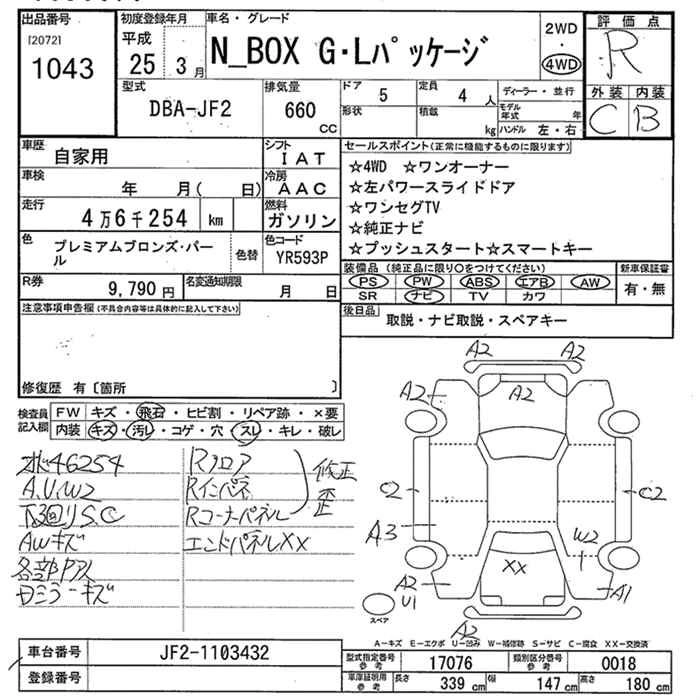 出品番号
[2072]
1043
初度登録年月
平成
25 3月
車名・グレード
N_BOX G・Lパッケージ
2WD
・
4WD
評価点
R
外装 内装
C B
型式
DBA-JF2
排気量
660
cc
ドア 5
定員 4 人
ディーラー・並行
形状
積載 kg
モデル年式 年
ハンドル 左・右
車歴
自家用
シフト
IAT
車検
年 月( 日)
冷房
AAC
走行
4万6千254 km
燃料
ガソリン
色
プレミアムブロンズ・パール
色替
色コード
YR593P
R券
9,790 円
名変通知期限
月 日
セールスポイント(正常に機能するものに限ります)
☆4WD ☆ワンオーナー
☆左パワースライドドア
☆ワンセグTV
☆純正ナビ
☆プッシュスタート☆スマートキー
装備品 (純正品に限り○をつけてください)
PS PW ABS エアB AW
SR ナビ TV カワ
新車保証書
有・無
後日品
取説・ナビ取説・スペアキー
注意事項申告欄(不具合内容等は具体的に記入して下さい)
修復歴 有〔箇所 〕
検査員記入欄
FW キズ・飛石・ヒビ割・リペア跡・×要
内装 キズ・汚レ・コゲ・穴・スレ・キレ・破レ
46254
A.U.W2
下回リS.C
AWキズ
各部
ドミラーキズ
Rフロア
Rインパネ
Rコーナーパネル
修正
歪
エンドパネルXX
A2 A2
A2 A2
C2 C2
A3
W2
XX
A2
U1
A1
A2
スペア
A-キズ E-エクボ U-凹み W-補修跡 S-サビ C-腐食 XX-交換済
車台番号
JF2-1103432
登録番号
型式指定番号参考 17076
類別区分番号参考 0018
車庫証明用参考
長さ 339 cm
幅 147 cm
高さ 180 cm